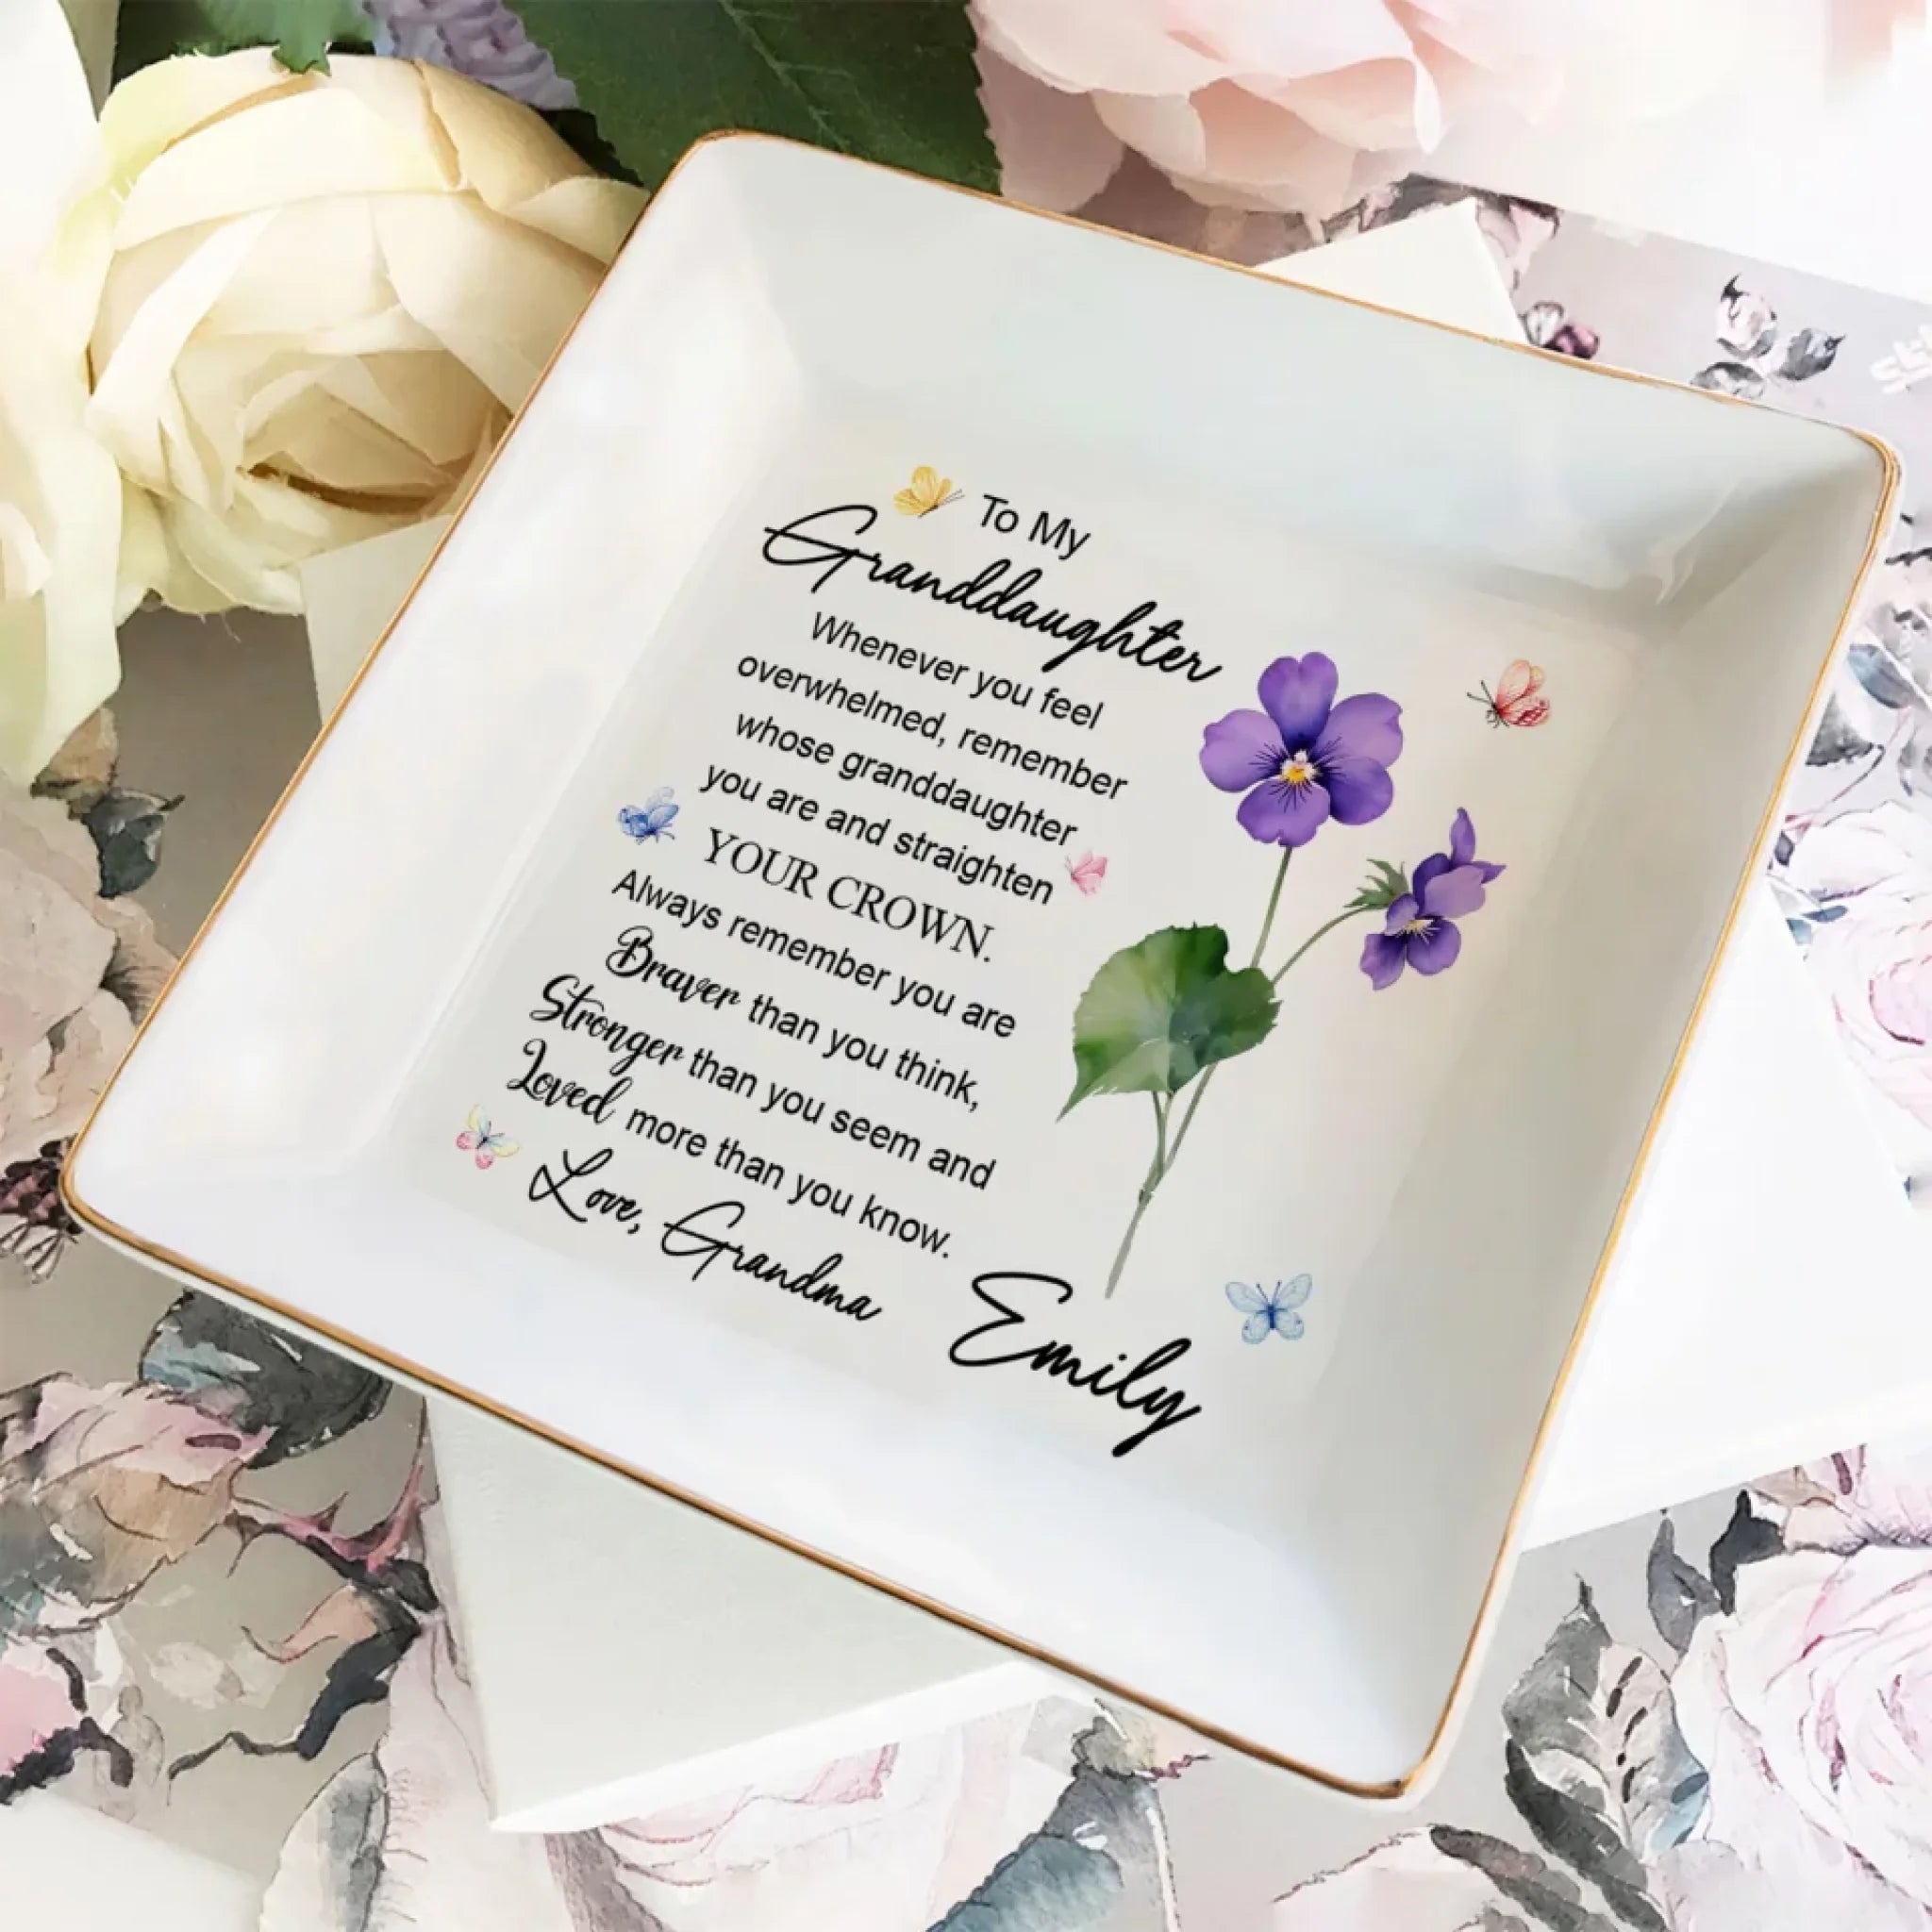 To My
Granddaughter
Whenever you feel
overwhelmed, remember
whose granddaughter
you are and straighten
YOUR CROWN.
Always remember you are
Braver than you think,
Stronger than you seem and
Loved more than you know.
Love, Grandma
Emily